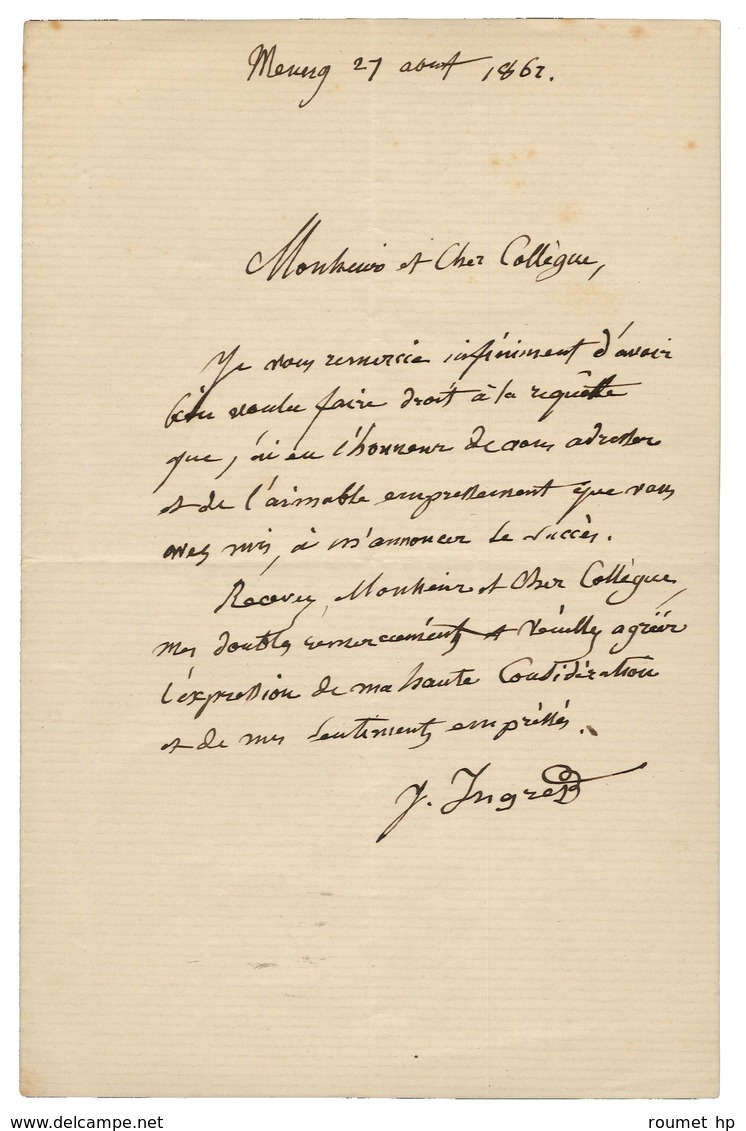 Meung 27 aout 1862.
Monsieur et Cher Collègue,
Je vous remercie infiniment d'avoir
bien voulu faire droit à la requêtte
que, j'ai eu l'honneur de vous adresser
et de l'aimable empressement que vous
avez mis, à m'annoncer le succès.
Recevez, Monsieur et Cher Collègue,
mes doubles remerciements et veuillez agréer
l'expression de ma haute Considération
et de mes sentiments empressés.
J. Ingres
www.delcampe.net
roumet hp